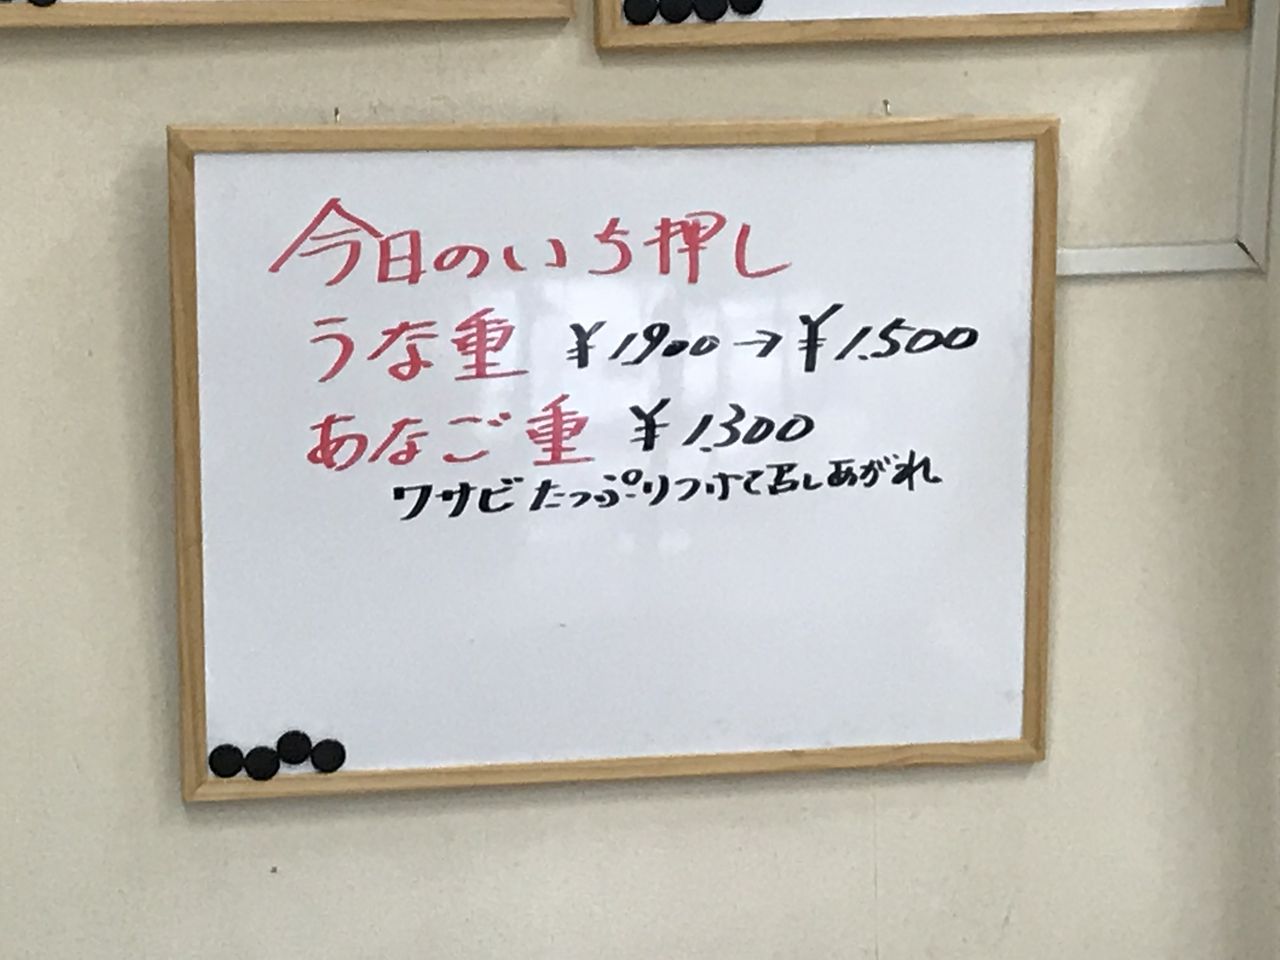 今日のいち押し
うな重 ¥1900→¥1.500
あなご重 ¥1.300
ワサビたっぷりつけて召しあがれ